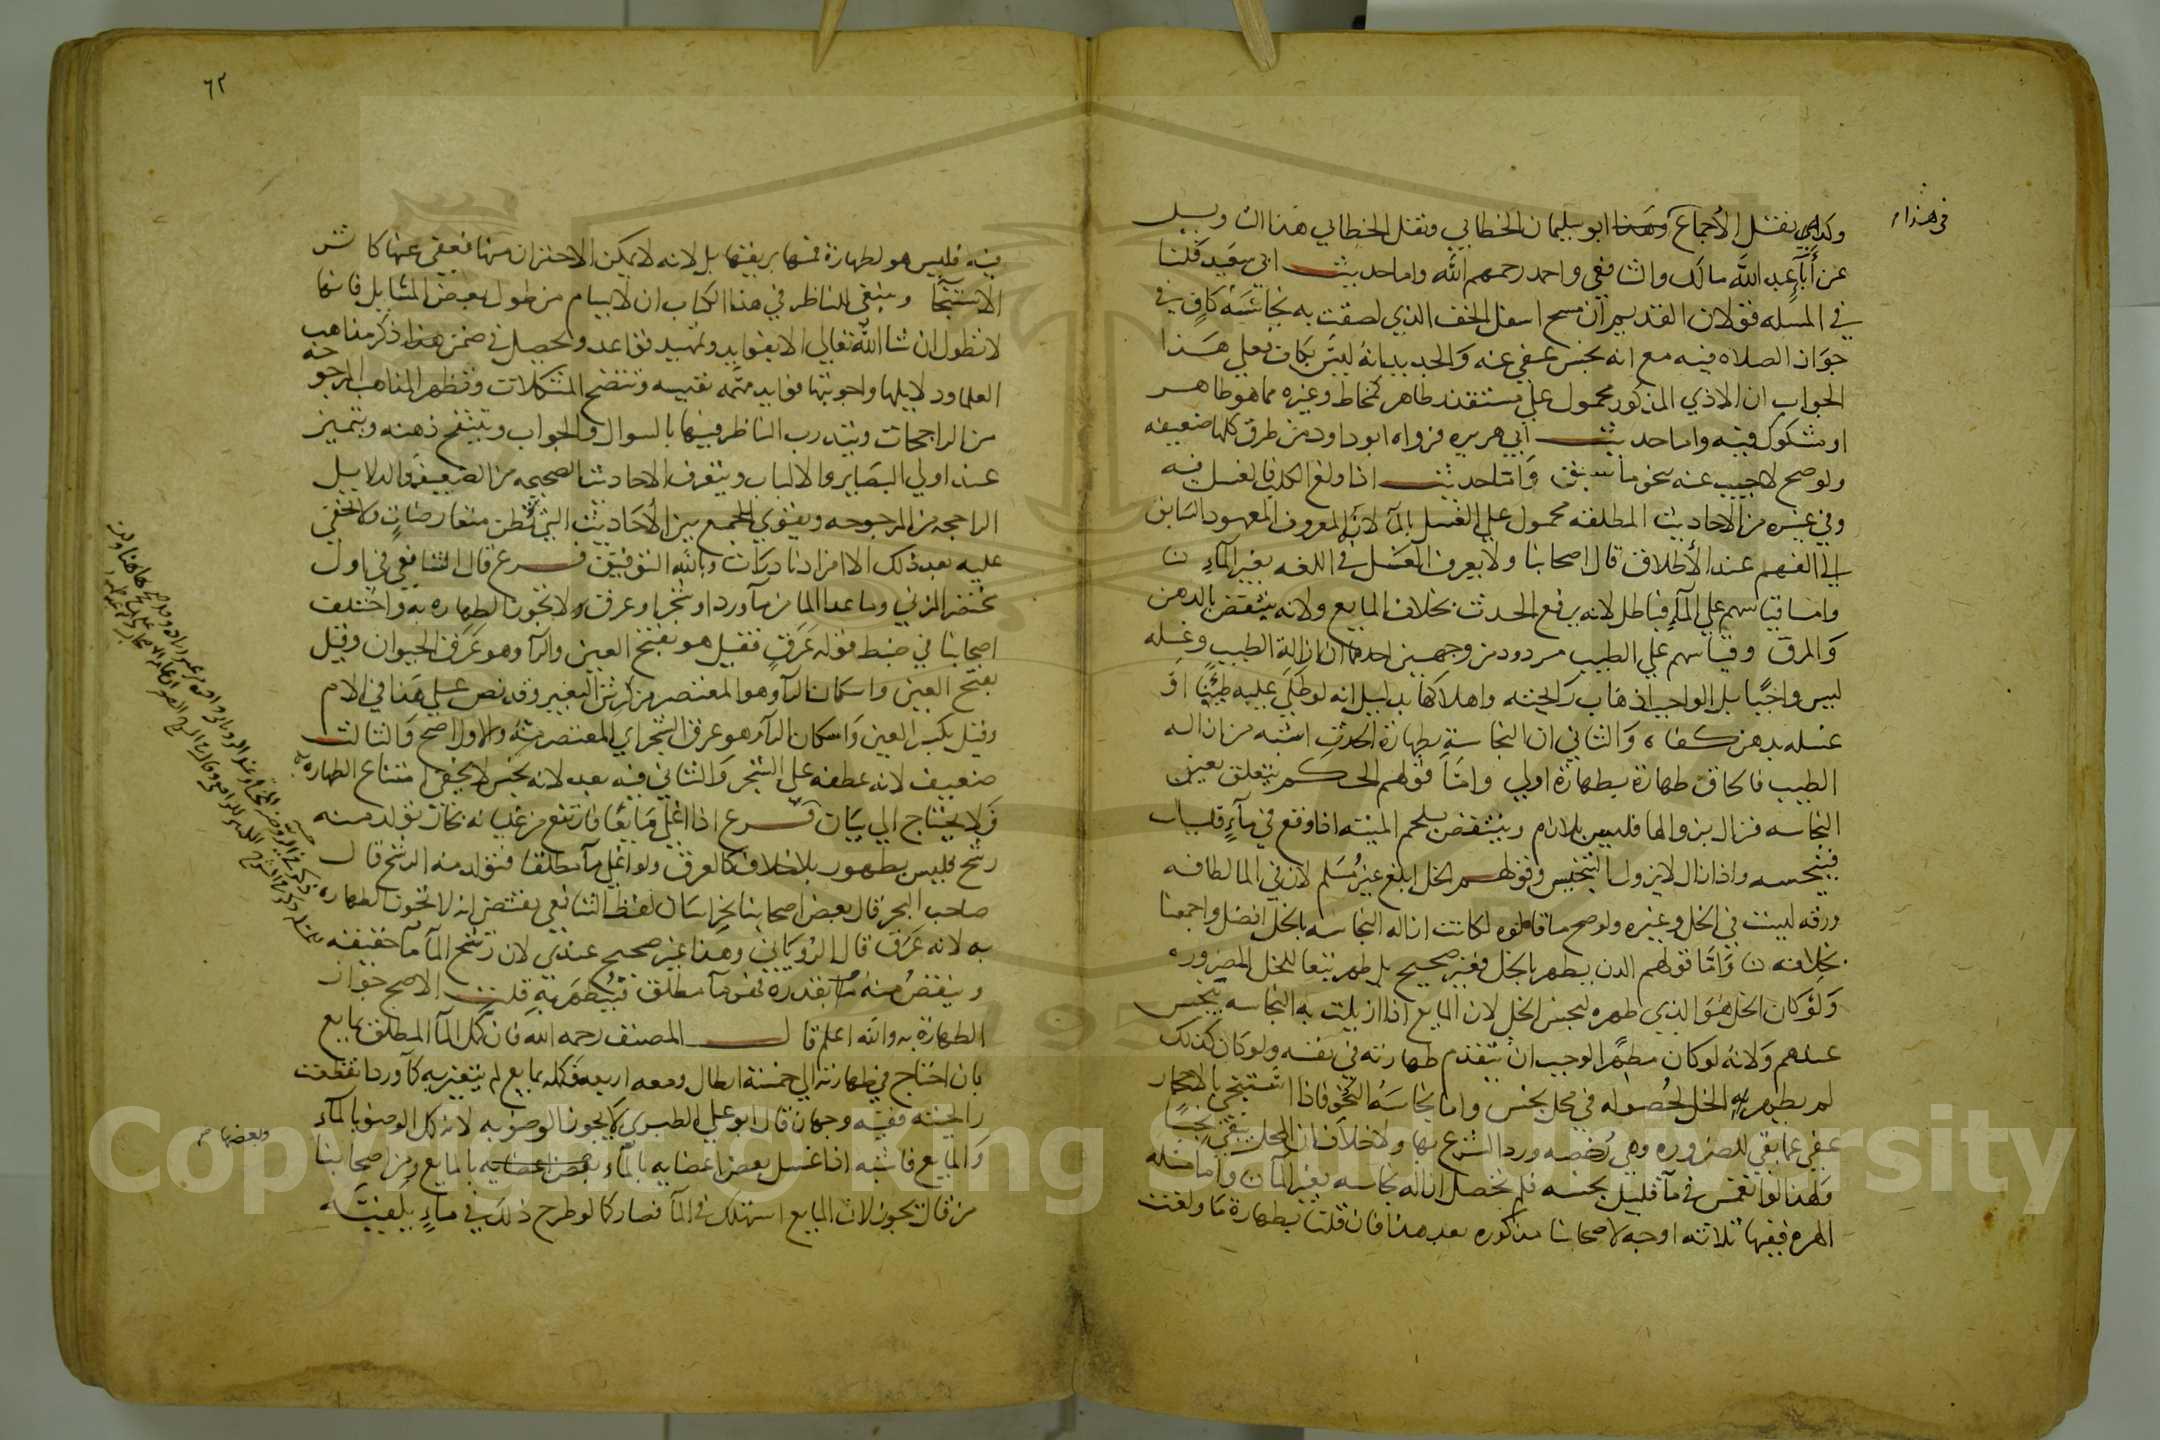 في هذا
وكذا من نقل الاجماع وهذا ابو سليمان الخطابي ونقل الخطابي هذا التاويل
عن أبي عبد الله مالك والشافعي واحمد رحمهم الله واما حديث ابي سعيد قلنا
في المسله قولان القديم ان مسح اسفل الخف الذي لصقت به نجاسة كاف في
جواز الصلاه فيه مع انه نجس عفي عنه والجديد انه ليس بكاف فعلي هذا
الجواب ان الاذي المذكور محمول علي مستقذر طاهر كمخاط وغيره مما هو طاهر
او مشكوك فيه واما حديث ابي هريره فرواه ابو داود من طرق كلها ضعيفه
ولو صح لاجيب عنه بنحو ما سبق واما حديث اذا ولغ الكلب فالغسل فيه
وفي غيره من الاحاديث المطلقه محمول علي الغسل بالمآ لانه المعروف المعهود السابق
الي الفهم عند الأطلاق قال اصحابنا ولا يعرف الغسل في اللغه بغير المآء ن
واما قياسهم علي المآء فباطل لانه يرفع الحدث بخلاف المايع ولانه ينتقض بالدهن
والمرق وقياسهم علي الطيب مردود من وجهين احدهما ان ازالة الطيب وغسله
ليس واجبًا بل الواجب اذهاب رايحته واهلاكها بدليل انه لو طلي عليه طينًا او
غسله بدهن كفاه والثاني ان النجاسة بطهارة الحدث اشبه من ازاله
الطيب فالحاق طهارة بطهارة اولي واما قولهم الحكم يتعلق بعين
النجاسه فزال بزوالها فليس بلازم وينتقض بلحم الميته اذا وقع في مآء قليل
فينجسه واذا زال لا يزول التنجيس وقولهم الخل ابلغ غير مسلم لان في الما لطافه
ورقه ليست في الخل وغيره ولو صح ما قالوه لكانت ازاله النجاسه بالخل افضل واجمعنا
بخلافه ن واما قولهم الدن يطهر بالخل فغير صحيح بل طهر تبعا للخل للضروره
ولو كان الخل هو الذي طهره لنجس الخل لان المايع اذا ازيلت به النجاسه ينجس
عندهم ولانه لو كان مطهرا لوجب ان تتقدم طهارته في نفسه ولو كان كذلك
لم يطهر الخل لحصوله في محل نجس واما نجاسة النجو فاذا استنجي بالاحجار
عفي عما بقي للضروره وهي رخصه ورد الشرع بها ولا خلاف ان المحل يبقي نجسًا
ولهذا لو انغمس في مآ قليل نجسه فلم تحصل ازاله نجاسه بغير المآ ن واما مسله
الهره ففيها ثلاثه اوجه لاصحابنا مذكوره بعد هذا فان قلنا بطهارة ما ولغت
٦٢
فيه فليس هو لطهارة فمها بريقها بل لانه لا يمكن الاحتراز منها فعفي عنها كاثر
الاستنجآ وينبغي للناظر في هذا الكتاب ان لا يسام من طول بعض المسايل فانها
لا تطول ان شا الله تعالي الا بفوايد وتمهيد قواعد ويحصل في ضمن هذا ذكر مذاهب
العلما ودلايلها واجوبتها فوايد مهمه نفيسه وتتضح المشكلات وتظهر المذاهب المرجوحه
من الراجحات ويتدرب الناظر فيها بالسوال والجواب ويتنقح ذهنه ويتميز
عند اولي البصاير والالباب ويتعرف الاحاديث الصحيحه من الضعيفه والدلايل
الراجحه من المرجوحه ويقوي للجمع بين الأحاديث التي تظن متعارضات ولا تخفي
عليه بعد ذلك الا افراد نادرات وبالله التوفيق فرع قال الشافعي في اول
مختصر المزني وما عدا الما من مآ ورد او شجر او عرق لا تجوز الطهاره به واختلف
اصحابنا في ضبط قوله عرق فقيل هو بفتح العين والرآ وهو عرق الحيوان وقيل
بفتح العين واسكان الرآ وهو المعتصر من كرش البعير وقد نص علي هذا في الام
وقيل بكسر العين واسكان الرآ وهو عرق الشجر اي المعتصر منه والاول اصح والثالث
ضعيف لانه عطفه علي الشجر والثاني فيه بعد لانه نجس لا يخفي امتناع الطهاره به
ولا يحتاج الي بيان فرع اذا اغلي مايعًا فارتفع من غليانه بخار تولد منه
رشح فليس بطهور بلا خلاف كالعرق ولو اغلي مآ مطلقا فتولد منه الرشح قال
صاحب البحر قال بعض اصحابنا بخراسان لفظ الشافعي يقتضي انه لا تجوز الطهاره
به لانه عرق قال الروياني وهذا غير صحيح عندي لان رشح المآ مآ حقيقه
وينقص منه بقدره فهو مآ مطلق فيتطهر به قلت الاصح جواز
الطهارة به والله اعلم قال المصنف رحمه الله فان كمل المآ المطلق بمايع
بان احتاج في طهارته الي خمسة ارطال ومعه اربعه فكمله بمايع لم يتغير به كمآ ورد انقطعت
رايحته ففيه وجهان قال ابو علي الطبري لا يجوز الوضو به لانه كمل الوضو بالمآء
والمايع فاشبه اذا غسل بعض اعضايه بالمآء وبعضها بالمايع ومن اصحابنا
من قال يجوز لان المايع استهلك في المآ فصار كما لو طرح ذلك في مآء يكفيه
وبعضها صح